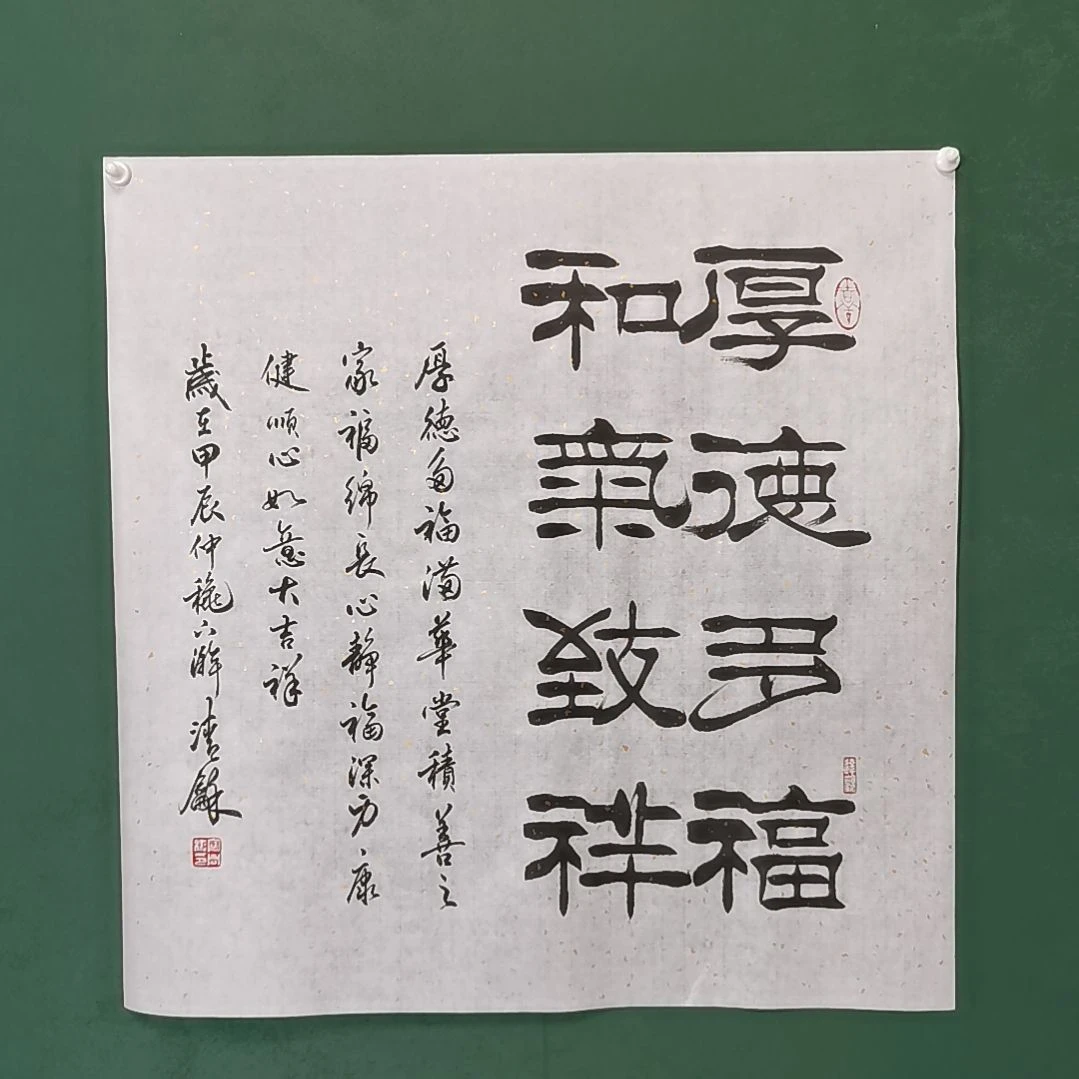 厚德多福
和氣致祥
厚德多福滿華堂積善之
家福綿長心靜福深身康
健順心如意大吉祥
歲在甲辰仲穐清龢